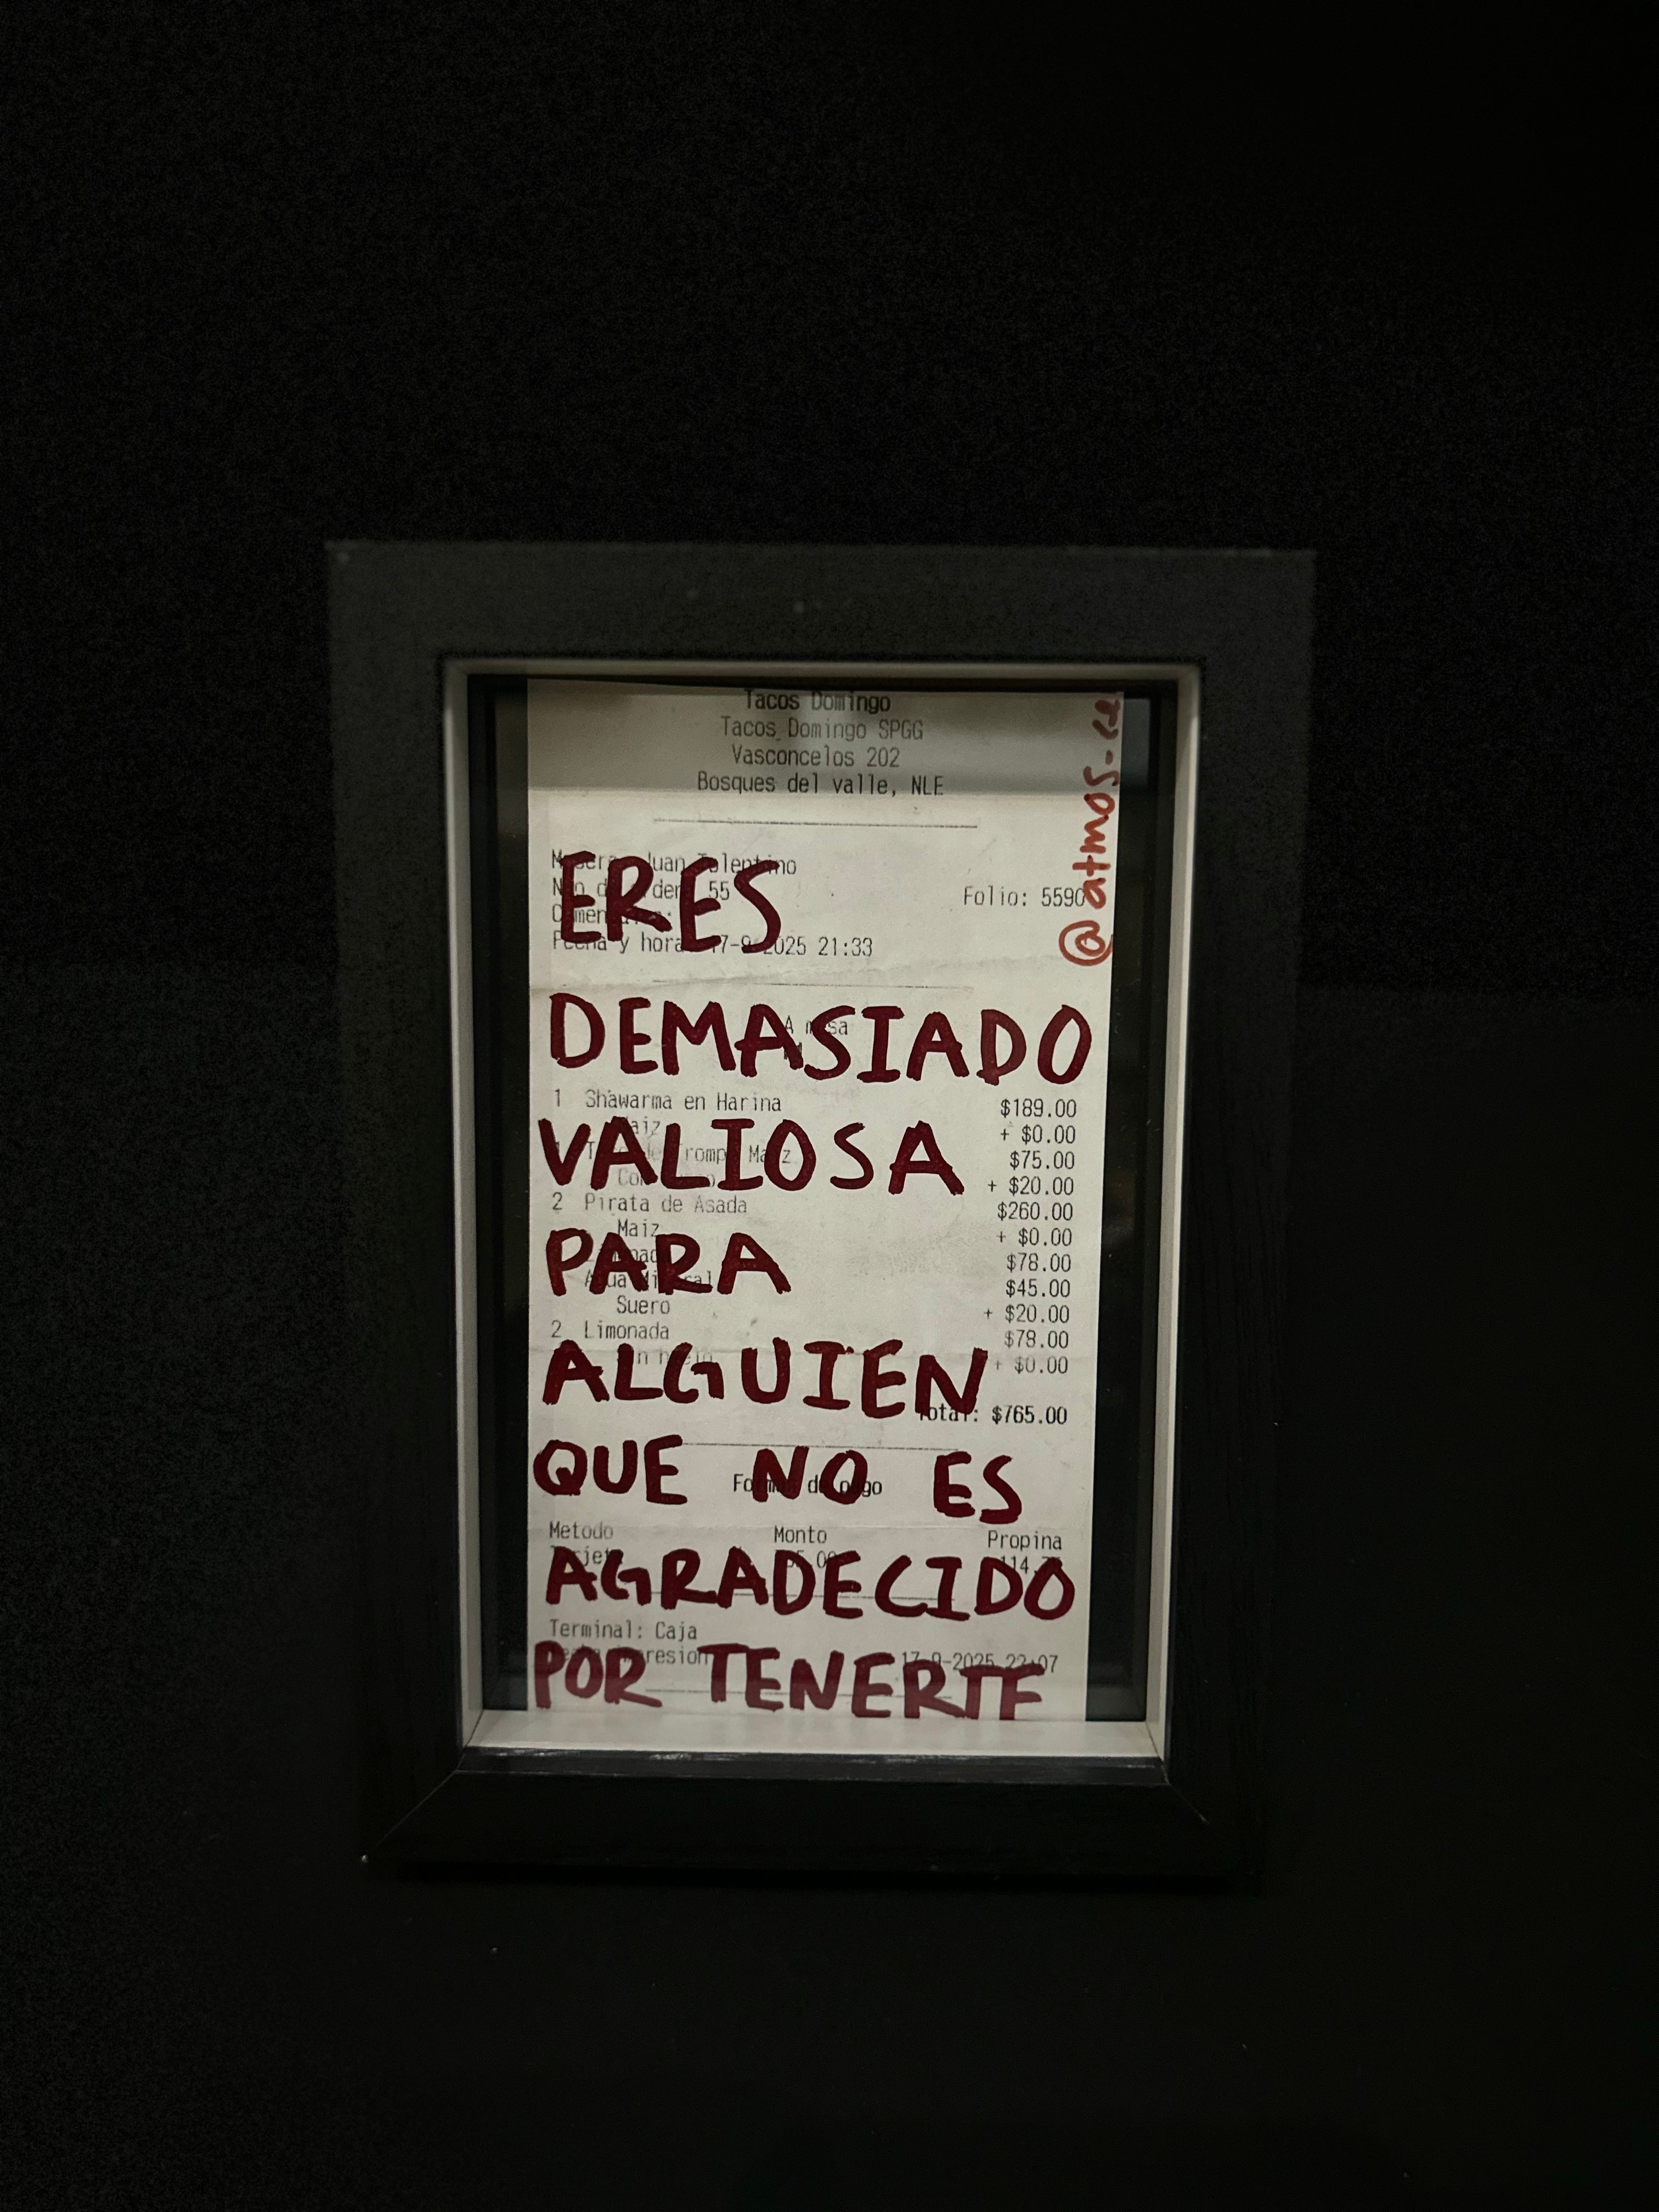 Tacos Domingo
Tacos Domingo SPGG
Vasconcelos 202
Bosques del valle, NLE
@atmos.
Juan Tolentino
55
Folio: 5590
Fecha y hora: 17-9-2025 21:33
ERES
A mesa
DEMASIADO
1 Shawarma en Harina $189.00
Maiz + $0.00
VALIOSA
Maiz $75.00
+ $20.00
2 Pirata de Asada $260.00
Maiz + $0.00
PARA
$78.00
Agua Mineral $45.00
Suero + $20.00
2 Limonada $78.00
+ $0.00
ALGUIEN
Total: $765.00
QUE NO ES
Forma de pago
Metodo Monto Propina
Tarjeta
AGRADECIDO
Terminal: Caja
17-9-2025 22:07
POR TENERTE